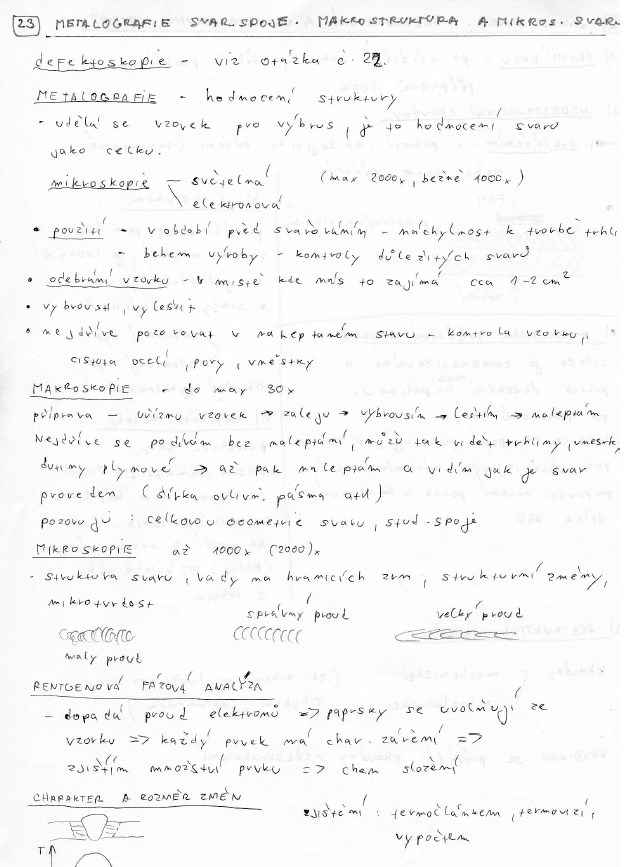 23 METALOGRAFIE SVAR. SPOJE. MAKROSTRUKTURA A MIKROS. SVARU
defektoskopie - viz otázka č. 22.
METALOGRAFIE - hodnocení struktury
- udělá se vzorek pro výbrus, je to hodnocení svaru
jako celku.
mikroskopie - světelná (max 2000x, bežně 1000x)
elektronová.
• použití - v období před svařováním - náchylnost k tvorbě trhli
- behem výroby - kontroly důležitých svarů
• odebrání vzorku - v místě kde nás to zajímá cca 1-2 cm²
• vybrousit, vyleštit
• nejdříve pozorovat v naleptaném stavu - kontrola vzorku,
čistota oceli, pory, vměstky
MAKROSKOPIE - do max 30x
příprava - uříznu vzorek → zaleju → vybrousím → leštím → naleptám
Nejdříve se podívám bez naleptání, můžu tak vidět trhliny, vmestk
dutiny plynové → až pak naleptám a vidím jak je svar
proveden (šířka ovlivn. pásma atd)
pozoruji : celkovou geometrie svaru, stud. spoje
MIKROSKOPIE až 1000x (2000)x
- struktura svaru, vady na hranicích zrn, strukturní změny,
mikrotvrdost
správný proud velký proud
malý proud
RENTGENOVÁ FÁZOVÁ ANALÝZA
- dopadá proud elektronů => paprsky se uvolňují ze
vzorku => každý prvek má char. záření =>
zjistím množství prvku => chem složení
CHARAKTER A ROZMĚR ZMĚN
zjištění : termočlánkem, termovizí,
výpočtem
T